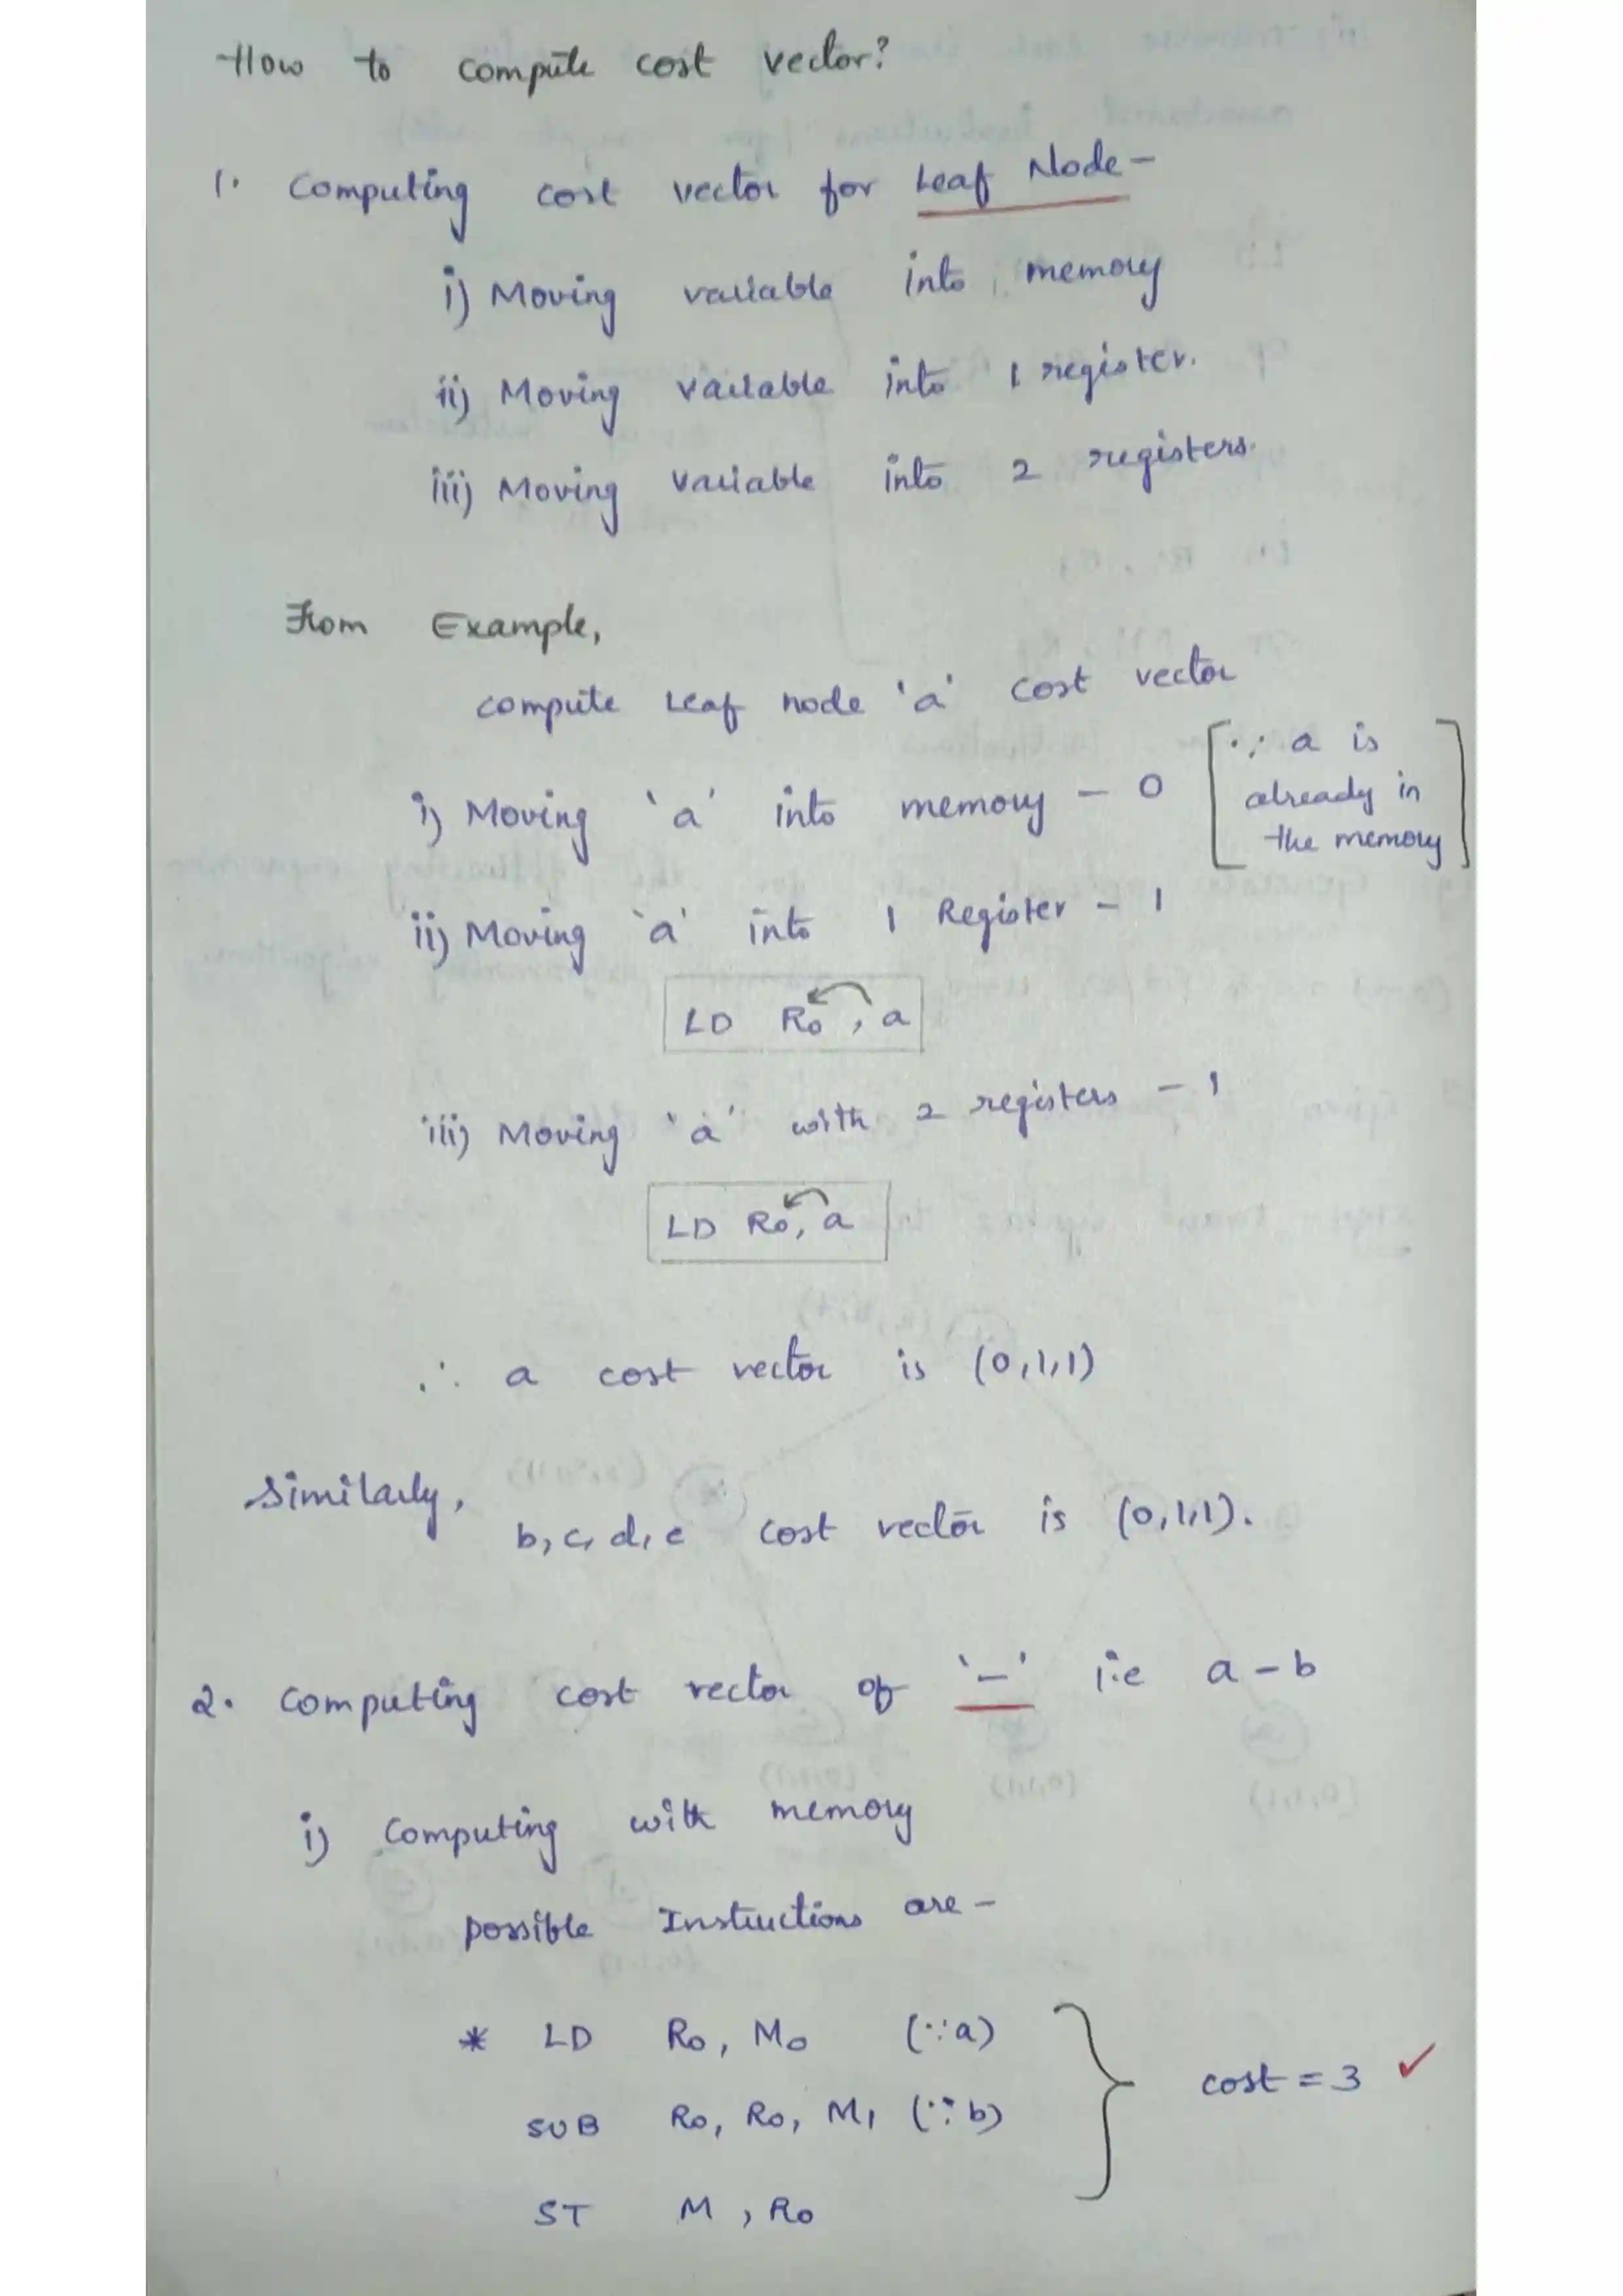 How to compute cost vector?
1. Computing cost vector for Leaf Node -
i) Moving variable into memory
ii) Moving variable into 1 register.
iii) Moving variable into 2 registers.
From Example,
compute Leaf node 'a' cost vector
i) Moving 'a' into memory - 0 [∵ a is
already in
the memory]
ii) Moving 'a' into 1 Register - 1
LD R0, a
iii) Moving 'a' with 2 registers - 1
LD R0, a
∴ a cost vector is (0,1,1)
Similarly,
b, c, d, e cost vector is (0,1,1).
2. Computing cost vector of '-' i.e a - b
i) Computing with memory
possible Instructions are -
* LD R0, M0 (∵ a)
SUB R0, R0, M1 (∵ b)
cost = 3 ✓
ST M, R0